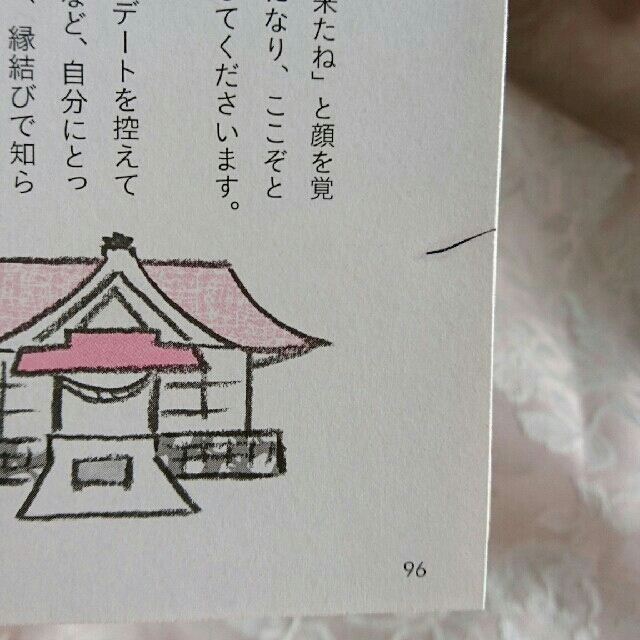 来たね」と顔を覚
なり、ここぞと
てくださいます。
デートを控えて
ど、自分にとっ
、縁結びで知ら
96